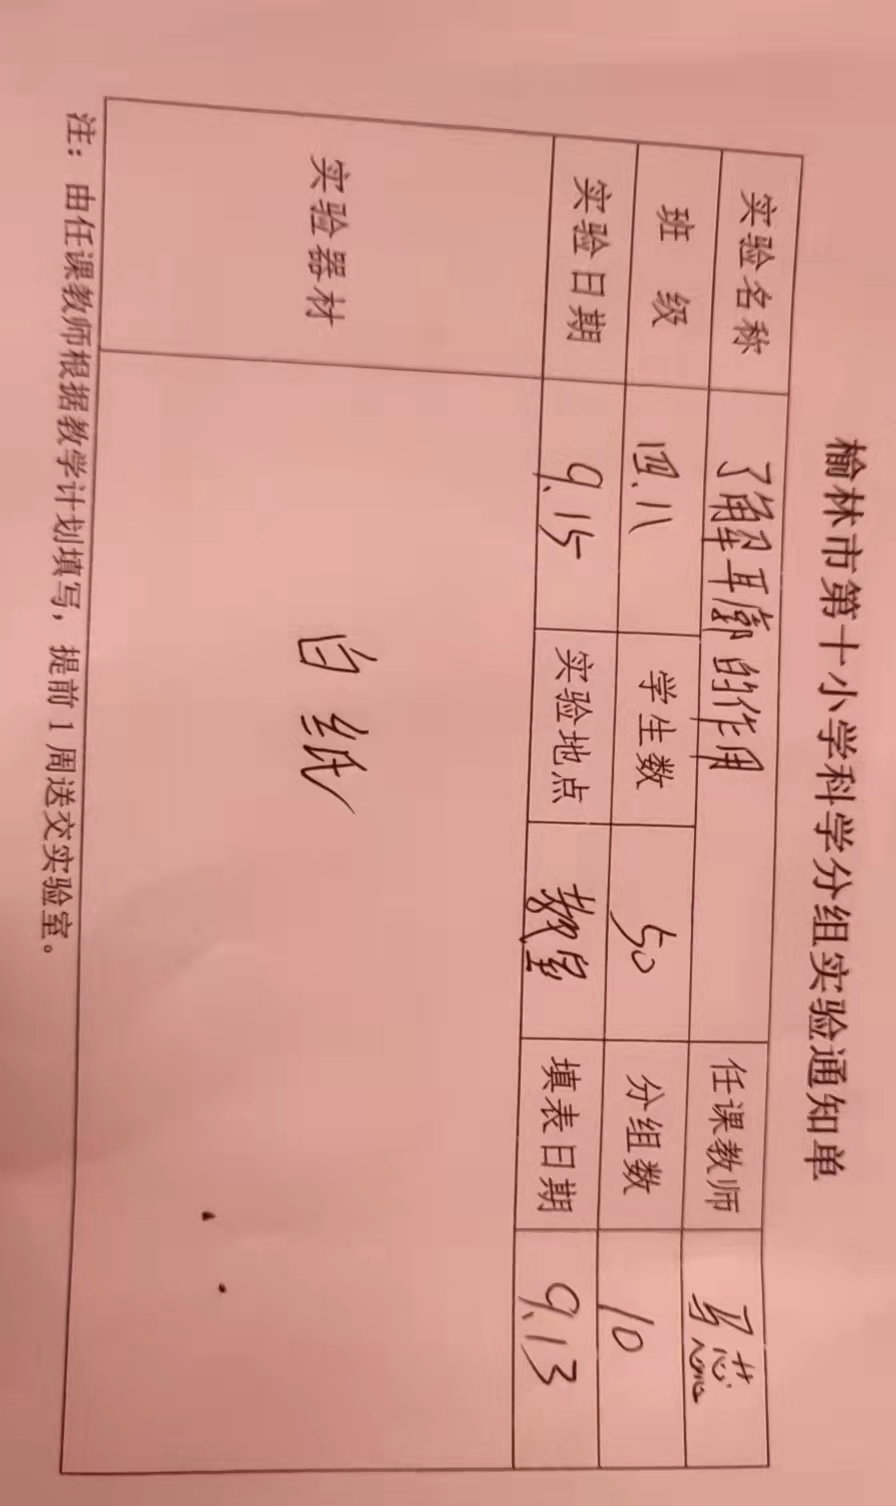 榆林市第十小学科学分组实验通知单
实验名称 了解耳廓的作用 任课教师 马蕊
班 级 四.八 学生数 50 分组数 10
实验日期 9.15 实验地点 教室 填表日期 9.13
实验器材 白纸
注：由任课教师根据教学计划填写，提前1周送交实验室。